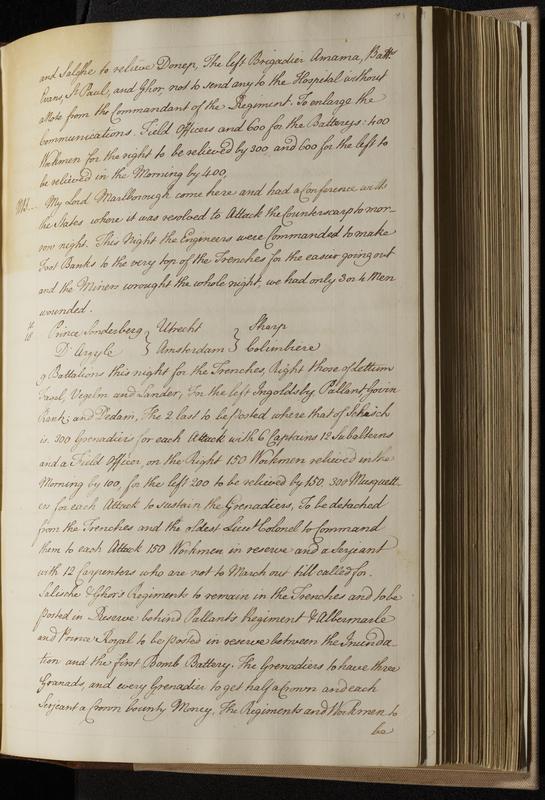 and Salghe to relieve Donep, The left Brigadier Amama, Batts
Evans, St Paul, and Ghor, not to send any to the Hospital without
a Note from the Commandant of the Regiment. To enlarge the
Communications. Field Officers and 600 for the Batterys: 400
Workmen for the right to be relieved by 300 and 600 for the left to
be relieved in the Morning by 400,
My Lord Marlborough come here and had a Conference with
the States where it was resolved to Attack the Counterscarp to mor-
row night. This Night the Engineers were Commanded to make
Foot Banks to the very top of the Trenches for the easier going out
and the Miners wrought the whole night, we had only 3 or 4 Men
wounded.
Prince Sonderberg } Utrecht } Sharp
D'Argyle } Amsterdam } Colimbiere
9 Battalions this night for the Trenches, Right those of dettum
Fasil, Vegelin and Lander; For the left Ingoldsby, Pallant, Govin
Rank; and Dedam, The 2 last to be posted where that of
is. 300 Grenadiers for each Attack with 6 Captains 12 Subalterns
and a Field Officer, on the Right 150 Workmen relieved in the
Morning by 100, for the left 200 to be relieved by 150, 300 Musquett-
ers for each Attack to sustain the Grenadiers, To be detached
from the Trenches and the oldest Lieut Colonel to Command
them to each Attack 150 Workmen in reserve and a Serjeant
with 12 Carpenters who are not to March out till called for.
Salische & Ghor's Regiments to remain in the Trenches and to be
posted in Reserve behind Pallants Regiment & Albermarle
and Prince Royal to be posted in reserve between the Inunda-
tion and the first Bomb Battery. The Grenadiers to have three
Granads, and every Grenadier to get half a Crown and each
Serjeant a Crown bounty Money, The Regiments and Workmen to
be